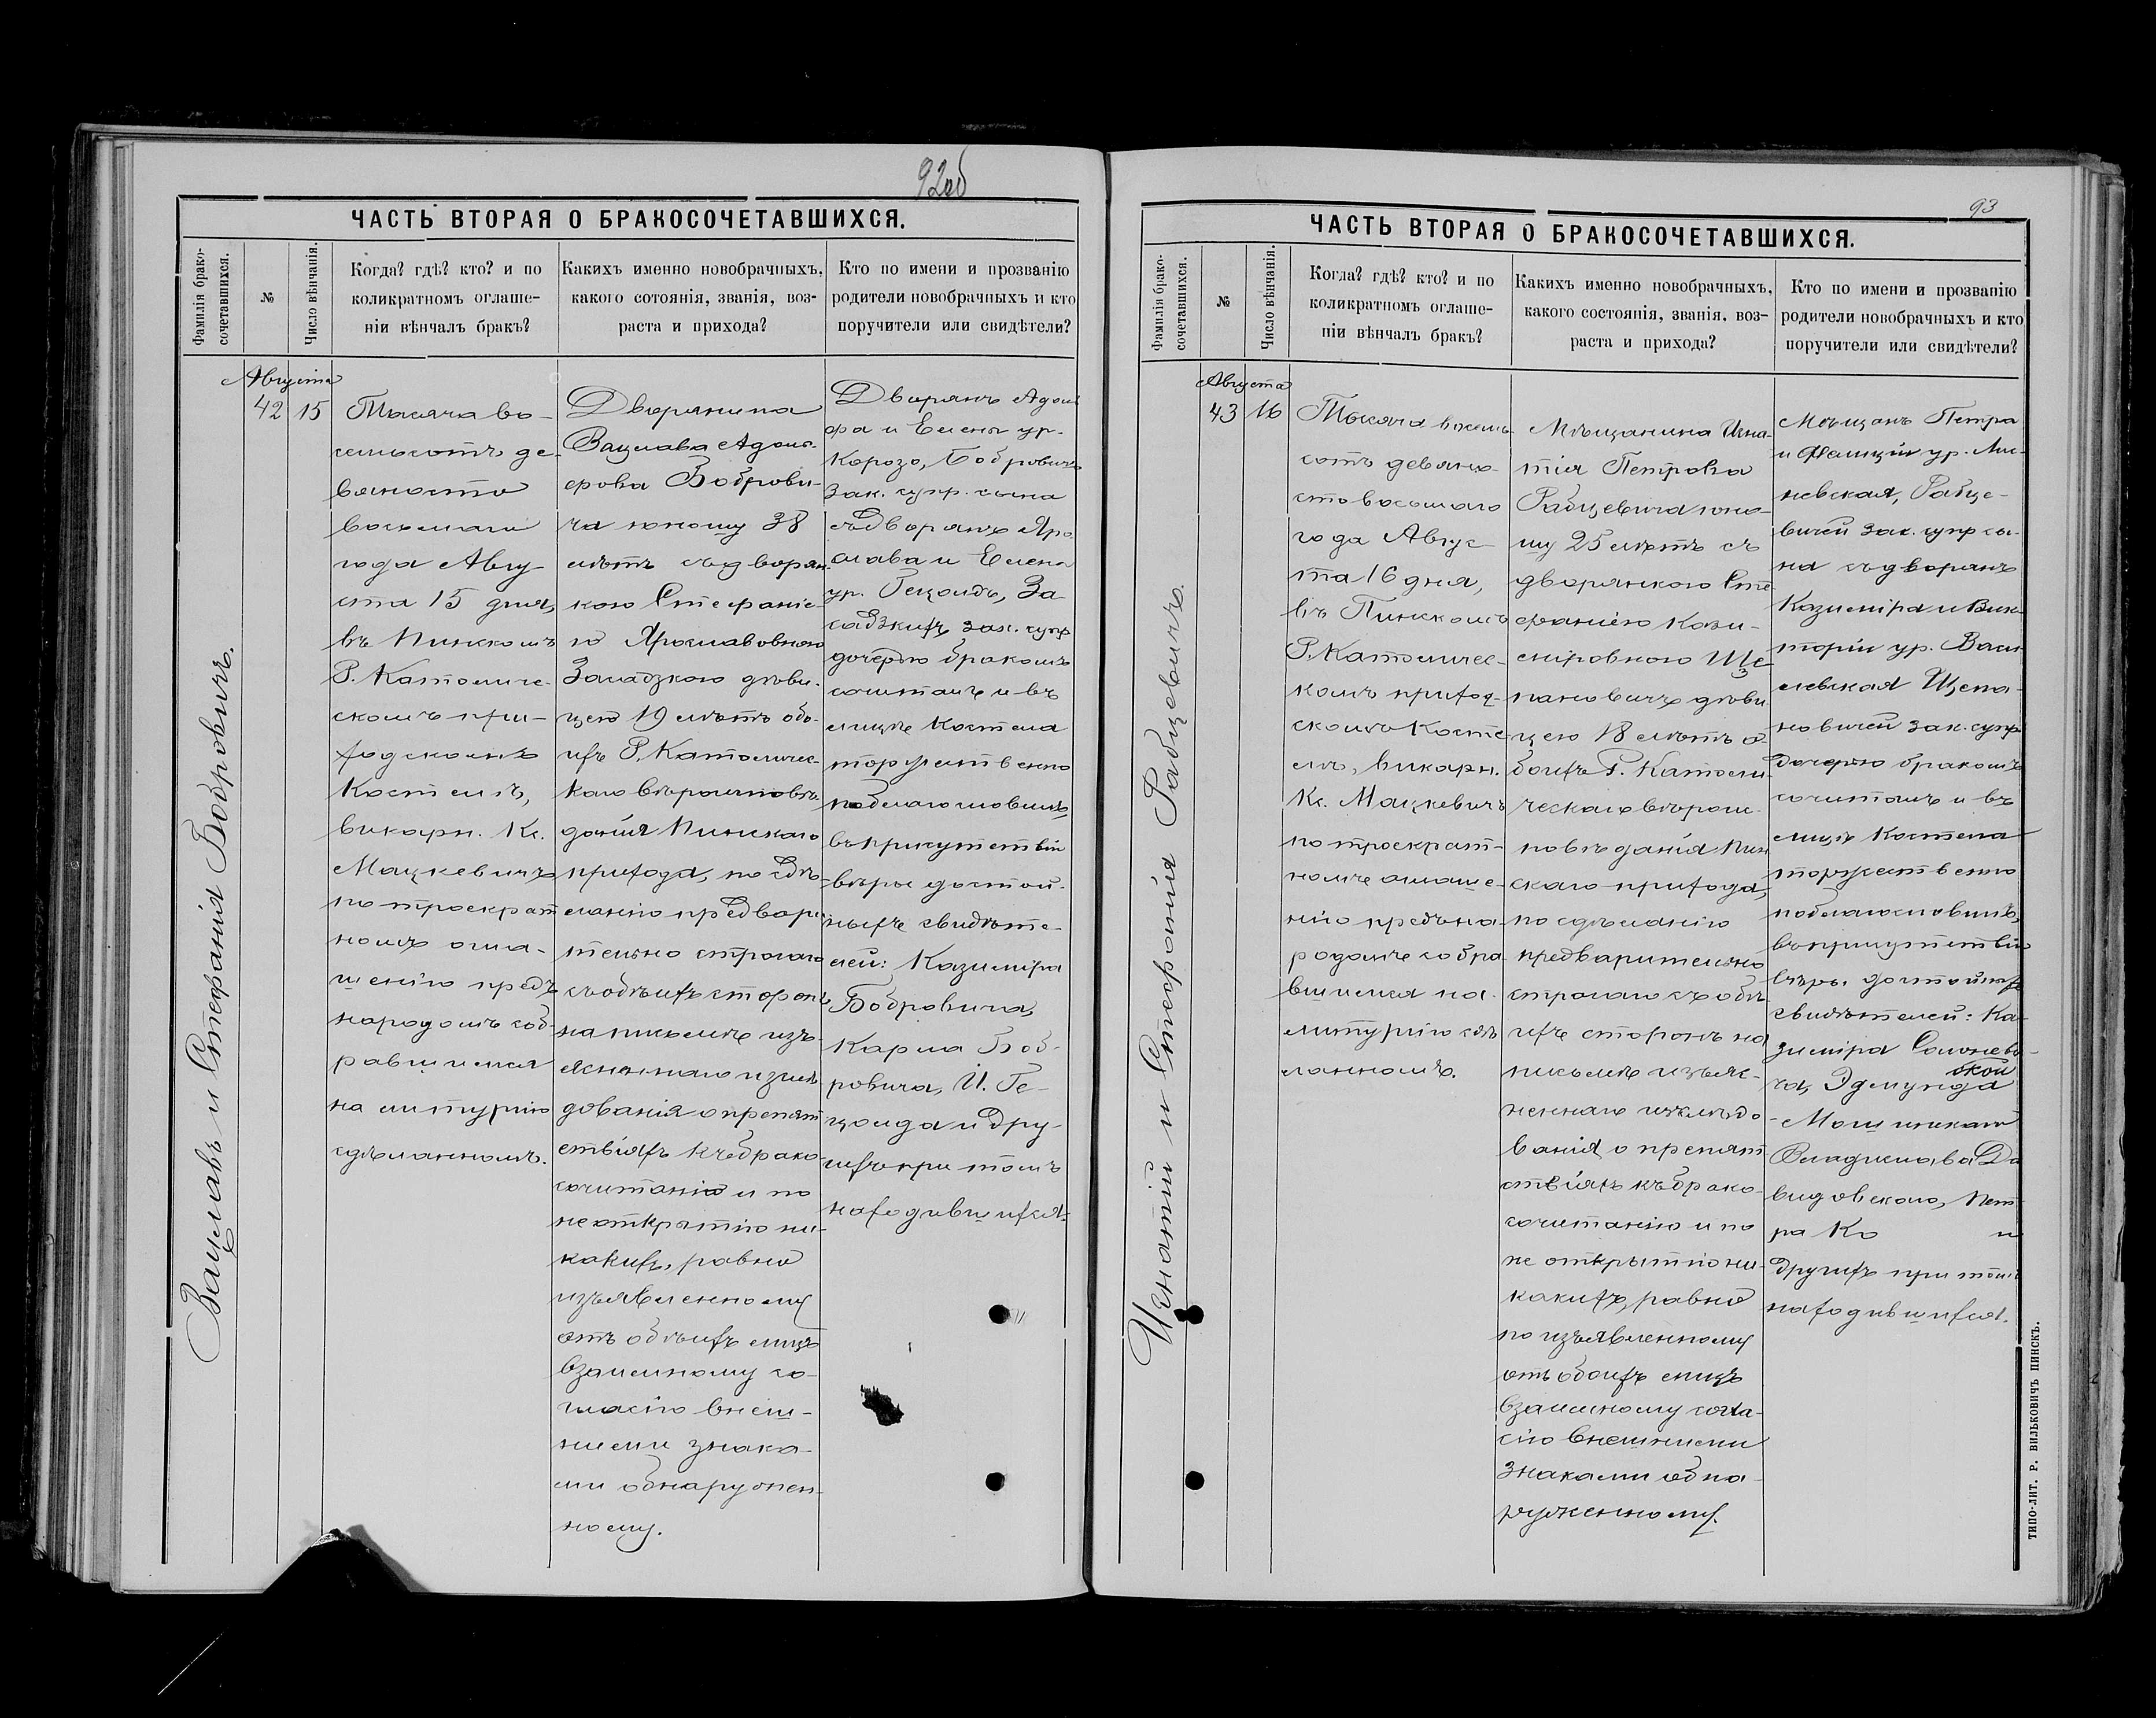 92об
ЧАСТЬ ВТОРАЯ О БРАКОСОЧЕТАВШИХСЯ.
Фамилія брако-
сочетавшихся.
№
Число вѣнчанія.
Когда? гдѣ? кто? и по
коликратномъ оглаше-
ніи вѣнчалъ бракъ?
Какихъ именно новобрачныхъ,
какого сотоянія, званія, воз-
раста и прихода?
Кто по имени и прозванію
родители новобрачныхъ и кто
поручители или свидѣтели?
Вацлавъ и Стефанія Бобровичъ.
Августа
42 15
Тысяча во-
семьсотъ де-
вяносто
восьмаго
года Авгу-
ста 15 дня,
въ Пинскомъ
Р. Католиче-
скомъ при-
ходскомъ
Костелѣ,
викарн. Кс.
Мацкевичъ
по троекрат
номъ огла-
шеніи предъ
народомъ соб-
равшимся
на литургію
сдѣланномъ.
Дворянина
Вацлава Адоль-
фова Боброви-
ча юношу 38
лѣтъ съ дворян-
кою Стефаніе-
ю Ярославовною
дѣви-
цею 19 лѣтъ обо-
ихъ Р. Католичес-
каго вѣроисповѣ-
данія Пинскаго
прихода, по сдѣ-
ланію предвари-
тельно строгаго
съ обѣихъ сторонъ
на письмѣ изъ-
ясненнаго изслѣ
дованія о препят
ствіяхъ къ брако-
сочитанію и по
не открытію ни-
какихъ, равно
изъявленному
отъ обѣихъ лицъ
взаимному со-
гласію внѣш-
ними знака-
ми обнаружен-
ному.
Дворянъ Адоль
фа и Елены ур.
Корозо, Бобровичъ
зак. супр. сына
съ дворянъ Яро
слава и Елены
ур. Гецольдъ, За-
зак. супр
дочерью бракомъ
сочиталъ и въ
лицѣ Костела
торжественно
поблагословилъ
въ присутствіи
вѣры достой-
ныхъ свидѣте-
лей: Казиміра
Бобровича,
Карла Боб-
ровича, И. Ге-
цольда и дру-
гихъ при томъ
находившихся.
93
ЧАСТЬ ВТОРАЯ О БРАКОСОЧЕТАВШИХСЯ.
Фамилія брако-
сочетавшихся.
№
Число вѣнчанія.
Когда? гдѣ? кто? и по
коликратномъ оглаше-
ніи вѣнчалъ бракъ?
Какихъ именно новобрачныхъ,
какого состоянія, званія, воз-
раста и прихода?
Кто по имени и прозванію
родители новобрачныхъ и кто
поручители или свидѣтели?
Игнатій и Стефанія Рабцевичъ.
Августа
43 16
Тысяча восемь-
сотъ девяно-
сто восьмаго
года Авгус-
та 16 дня,
въ Пинскомъ
Р. Католичес-
комъ приход-
скомъ Косте-
лѣ, викарн.
Кс. Мацкевичъ
по троекрат-
номъ оглаше-
ніи предъ на-
родомъ собра-
вшимся на
литургію сдѣ
ланномъ.
Мѣщанина Игна-
тія Петрова
Рабцевича юно-
шу 25 лѣтъ съ
дворянкою Сте
фаніею Кази-
міровною Ще-
пановичъ дѣви
цею 18 лѣтъ о-
боихъ Р. Католи-
ческаго вѣроис-
повѣданія Пин
скаго прихода,
по сдѣланію
предварительно
строгаго съ обѣ
ихъ сторонъ на
письмѣ изъяс-
неннаго изслѣдо
ванія о препят
ствіяхъ къ брако-
сочитанію и по
не открытію ни-
какихъ, равно
по изъявленному
отъ обоихъ лицъ
взаимному согла-
сію внѣшними
знаками обна-
руженному.
Мѣщанъ Петра
и Фелиціи ур. Лис-
невская, Рабце-
вичей зак. супр сы-
на съ дворянъ
Казиміра и Вик-
торіи ур. Васи
левская Щепа-
новичей зак. супр
дочерью бракомъ
сочиталъ и въ
лицѣ Костела
торжественно
поблагословилъ,
въ присутствіи
вѣры достойныхъ
свидѣтелей: Ка-
зиміра Солоневи-
ча, Эдмунда
Владислава Да
видовскаго, Пет
ра Ко и
другихъ при томъ
находившихся.
ТИПО-ЛИТ. Р. ВИЛЬКОВИЧЪ ПИНСКЪ.